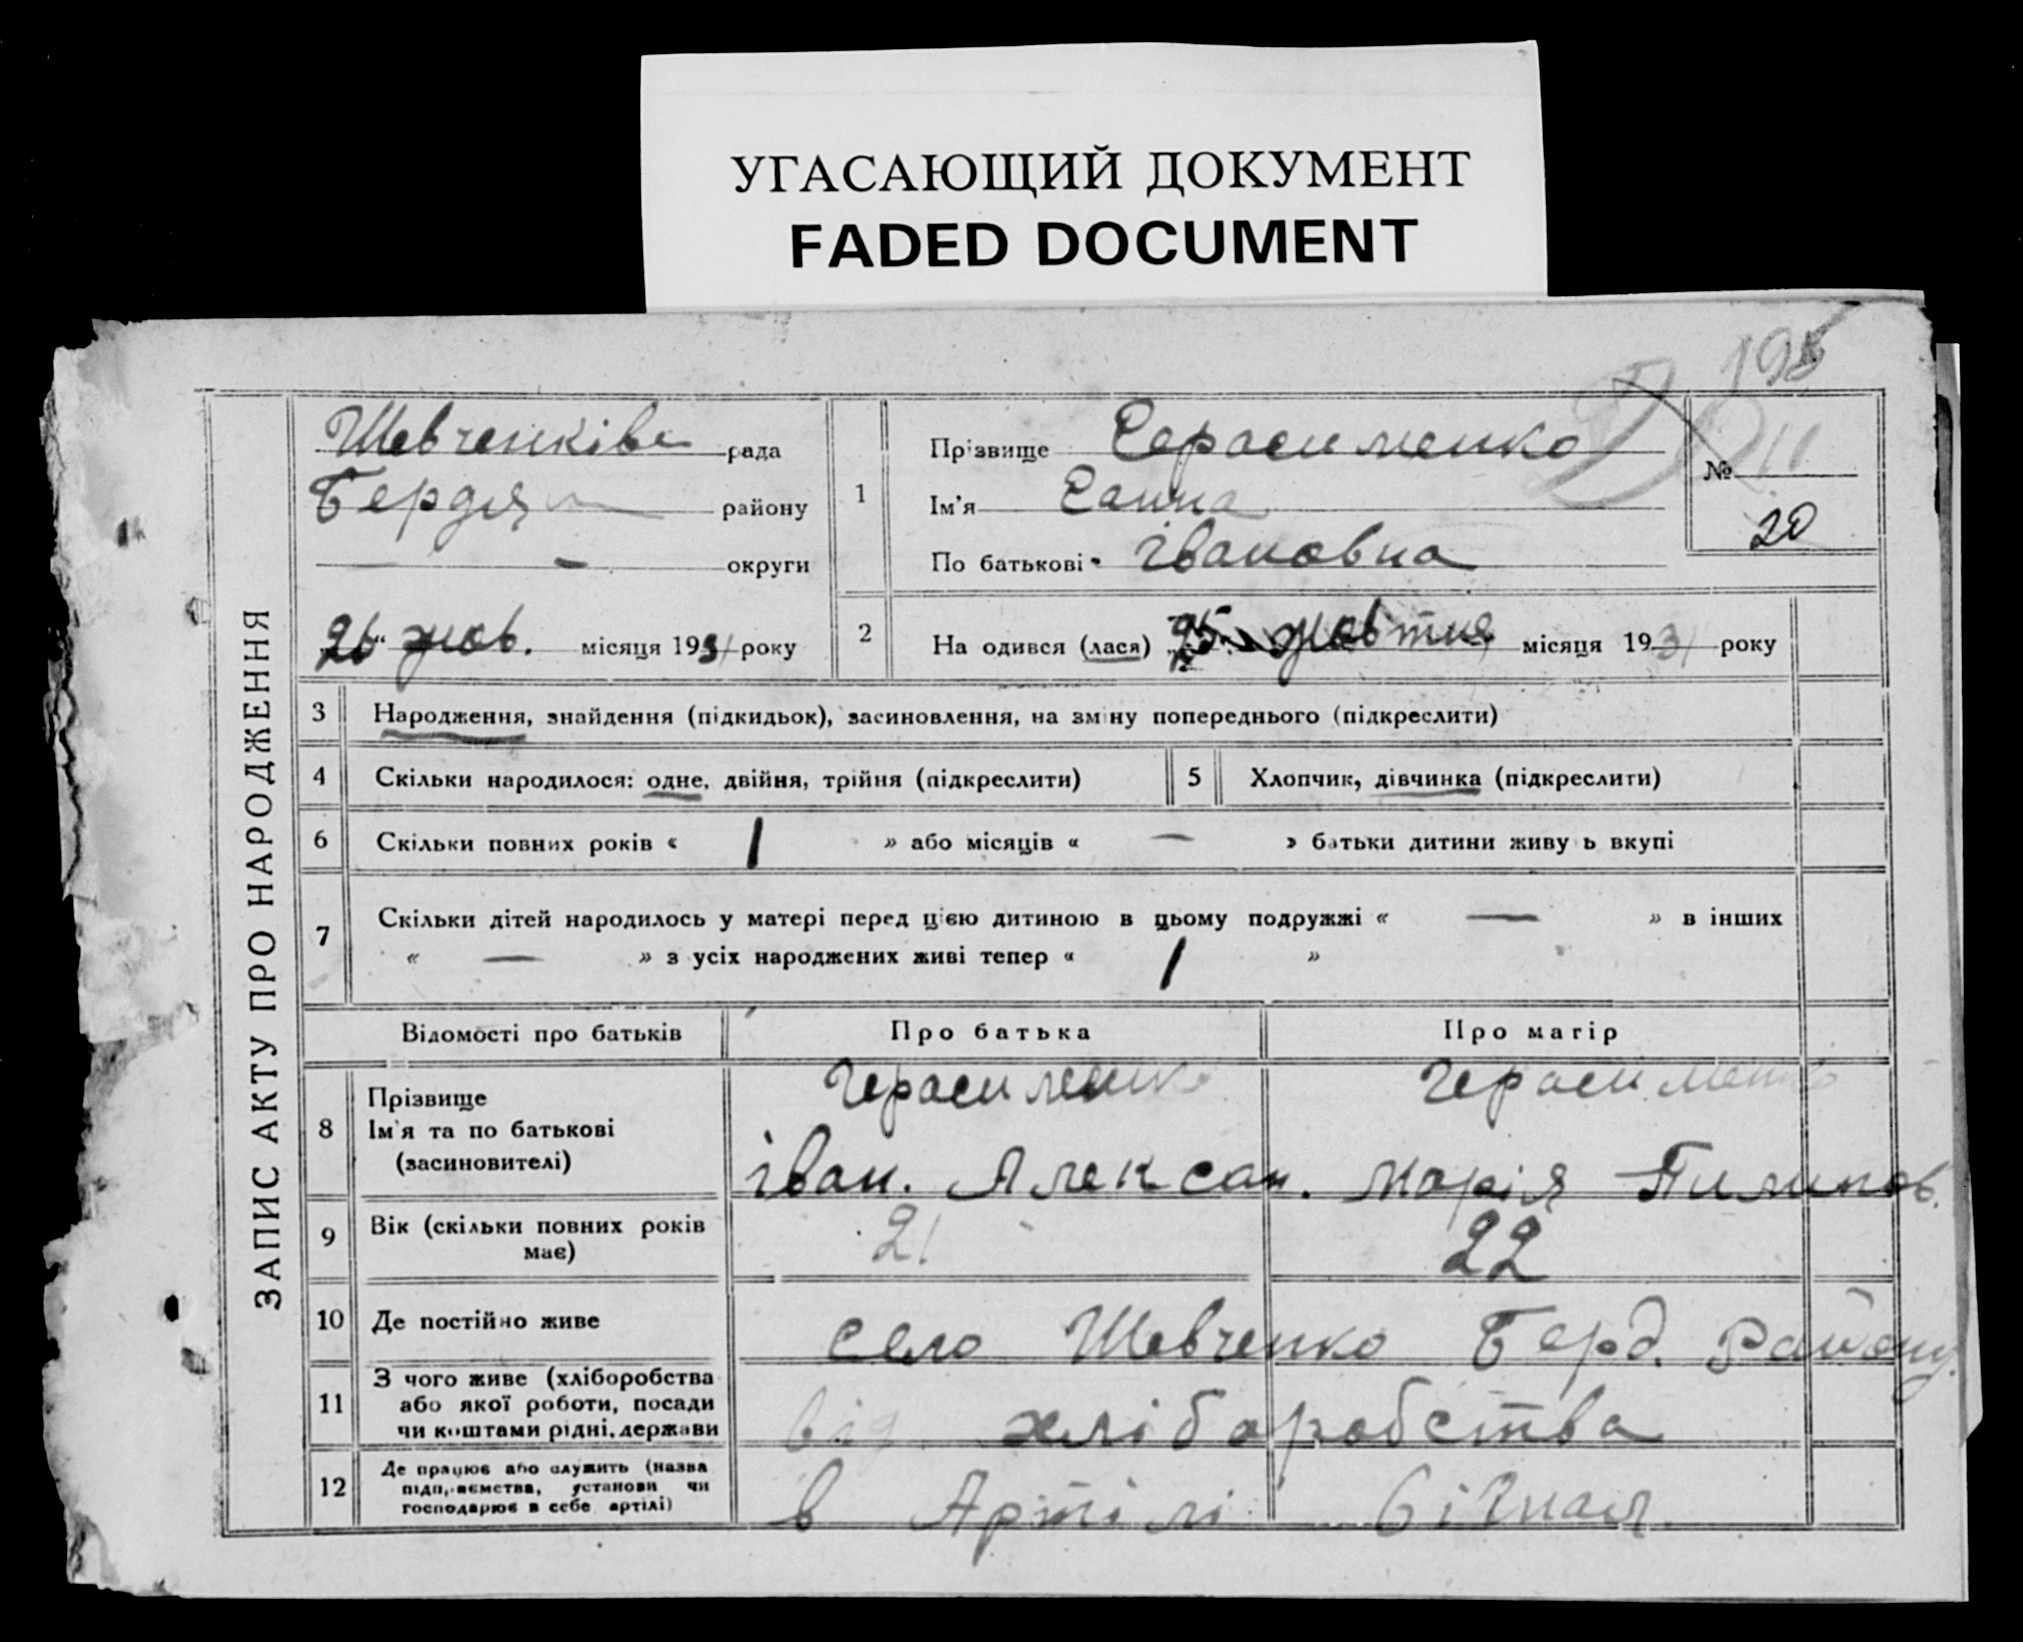 УГАСАЮЩИЙ ДОКУМЕНТ
FADED DOCUMENT
195
ЗАПИС АКТУ ПРО НАРОДЖЕННЯ
Шевченківс рада
Бердян району
— округи
26 жов. місяця 1931 року
1
Прізвище Герасименко
Ім'я Ганна
По батькові Івановна
№ 11
20
2 На одився (лася) 25 жовтня місяця 1931 року
3 Народження, знайдення (підкидьок), засиновлення, на зміну попереднього (підкреслити)
4 Скільки народилося: одне, двійня, трійня (підкреслити)
5 Хлопчик, дівчинка (підкреслити)
6 Скільки повних років « 1 » або місяців « — » батьки дитини живу ь вкупі
7 Скільки дітей народилось у матері перед цією дитиною в цьому подружжі « — » в інших
« — » з усіх народжених живі тепер « 1 »
Відомості про батьків Про батька Про матір
8 Прізвище Герасименко Герасименко
Ім'я та по батькові
(засиновителі) Іван. Алексан. Марія Пилипов.
9 Вік (скільки повних років
має) 21 22
10 Де постійно живе село Шевченко Берд. Району.
11 З чого живе (хліборобства
або якої роботи, посади
чи коштами рідні, держави від хліборобства
12 Де працює або служить (назва
підприємства, установи чи
господарює в себе артілі) в Артілі